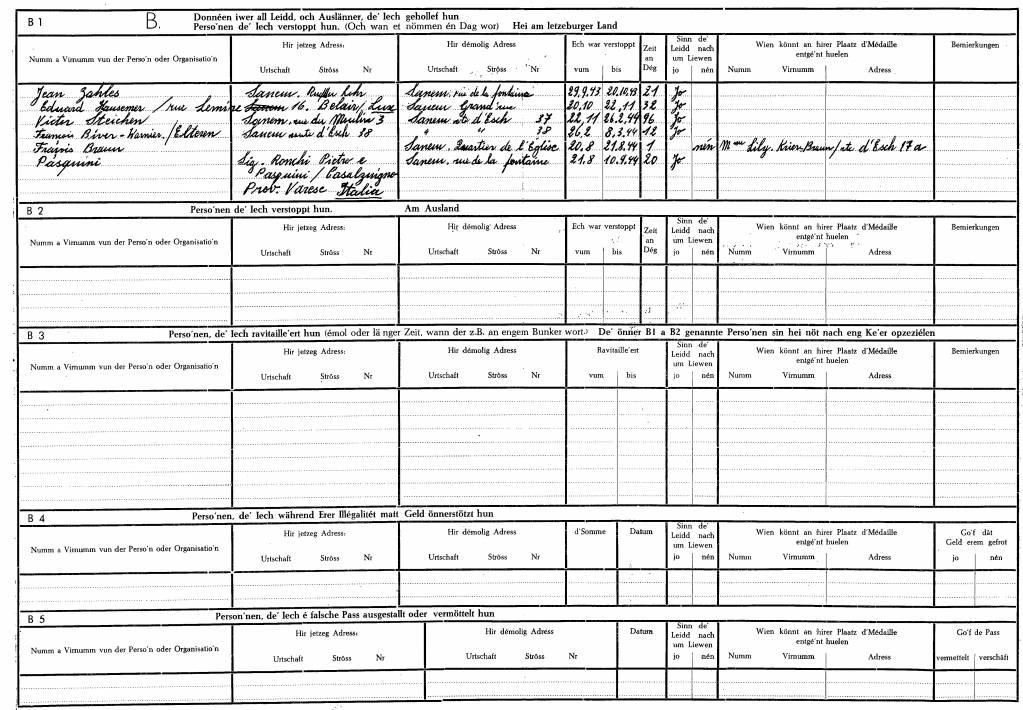 B 1 B. Donnéen iwer all Leidd, och Auslänner, de' Iech gehollef hun
Perso'nen de' Iech verstoppt hun. (Och wan et nömmen én Dag wor) Hei am letzeburger Land
Numm a Virnumm vun der Perso'n oder Organisatio'n
Hir jetzeg Adress:
Urtschaft Ströss Nr
Hir démolig Adress
Urtschaft Ströss Nr
Ech war verstoppt
vum bis
Zeit
an
Dég
Sinn de'
Leidd nach
um Liewen
jo nén
Wien könnt an hirer Plaatz d'Médaille
entgé'nt huelen
Numm Virnumm Adress
Bemierkungen
Jean Zahles Sanem. Sanem, rue de la fontaine 29.9.43 20.10.43 21 Jo
Eduard Hausemer / rue Semine 16. Belair/Lux Sanem Grand'rue 20.10 22.11 32 Jo
Victor Steichen Sanem, rue du Moulin 3 Sanem rte d'Esch 37 22.11 26.2.44 96 Jo
François Biver-Warnier /Elteren Sanem route d'Esch 38 " " 38 26.2 8.3.44 12 Jo
François Braun Sanem, Quartier de l'Église 20.8 21.8.44 1 nén Mme Lily Krier-Braun/rte d'Esch 17a
Pasquini Sig. Ronchi Pietro e Sanem, rue de la fontaine 21.8 10.9.44 20 Jo
Pasquini / Casalzuigno
Prov. Varese Italia
B 2 Perso'nen de' Iech verstoppt hun. Am Ausland
Numm a Virnumm vun der Perso'n oder Organisatio'n
Hir jetzeg Adress:
Urtschaft Ströss Nr
Hir démolig Adress
Urtschaft Ströss Nr
Ech war verstoppt
vum bis
Zeit
an
Dég
Sinn de'
Leidd nach
um Liewen
jo nén
Wien könnt an hirer Plaatz d'Médaille
entgé'nt huelen
Numm Virnumm Adress
Bemierkungen
B 3 Perso'nen, de' Iech ravitaille'ert hun (émol oder länger Zeit, wann der z.B. an engem Bunker wort.) De' önner B1 a B2 genannte Perso'nen sin hei nöt nach eng Ke'er opzeziélen
Numm a Virnumm vun der Perso'n oder Organisatio'n
Hir jetzeg Adress:
Urtschaft Ströss Nr
Hir démolig Adress
Urtschaft Ströss Nr
Ravitaille'ert
vum bis
Sinn de'
Leidd nach
um Liewen
jo nén
Wien könnt an hirer Plaatz d'Médaille
entgé'nt huelen
Numm Virnumm Adress
Bemierkungen
B 4 Perso'nen, de' Iech während Erer Illégalitét matt Geld önnerstötzt hun
Numm a Virnumm vun der Perso'n oder Organisatio'n
Hir jetzeg Adress:
Urtschaft Ströss Nr
Hir démolig Adress
Urtschaft Ströss Nr
d'Somme
Datum
Sinn de'
Leidd nach
um Liewen
jo nén
Wien könnt an hirer Plaatz d'Médaille
entgé'nt huelen
Numm Virnumm Adress
Go'f dât
Geld erem gefrot
jo nén
B 5 Person'nen, de' Iech é falsche Pass ausgestallt oder vermöttelt hun
Numm a Virnumm vun der Perso'n oder Organisatio'n
Hir jetzeg Adress:
Urtschaft Ströss Nr
Hir démolig Adress
Urtschaft Ströss Nr
Datum
Sinn de'
Leidd nach
um Liewen
jo nén
Wien könnt an hirer Plaatz d'Médaille
entgé'nt huelen
Numm Virnumm Adress
Go'f de Pass
vermettelt verschâft